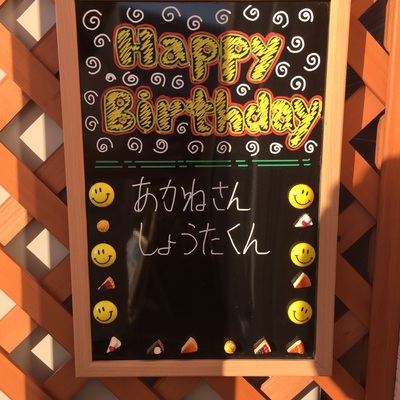 Happy
Birthday
あかねさん
しょうたくん